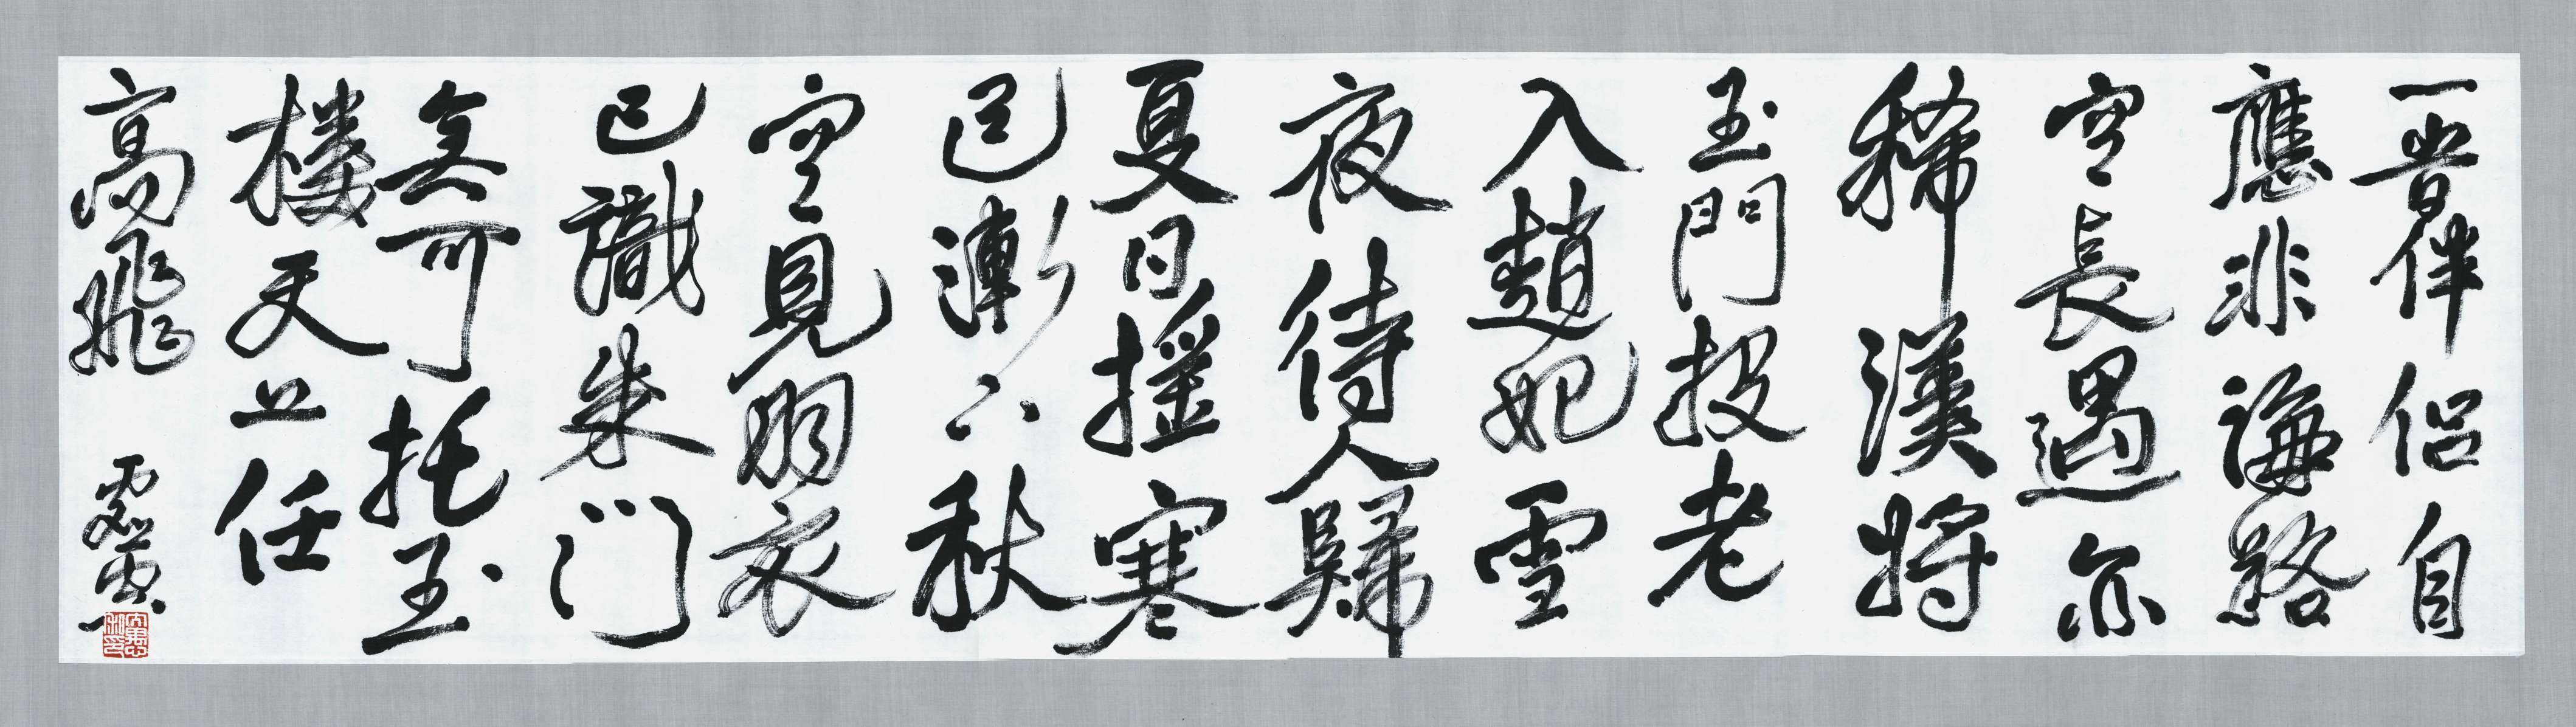 一普伴侣自
應非海路
空長遇亦
稀漢將
玉門投老
入趙妃雪
夜待人歸
夏日搖寒
色漸下秋
空見羽衣
已識朱門
可托玉
樓天上任
高飛